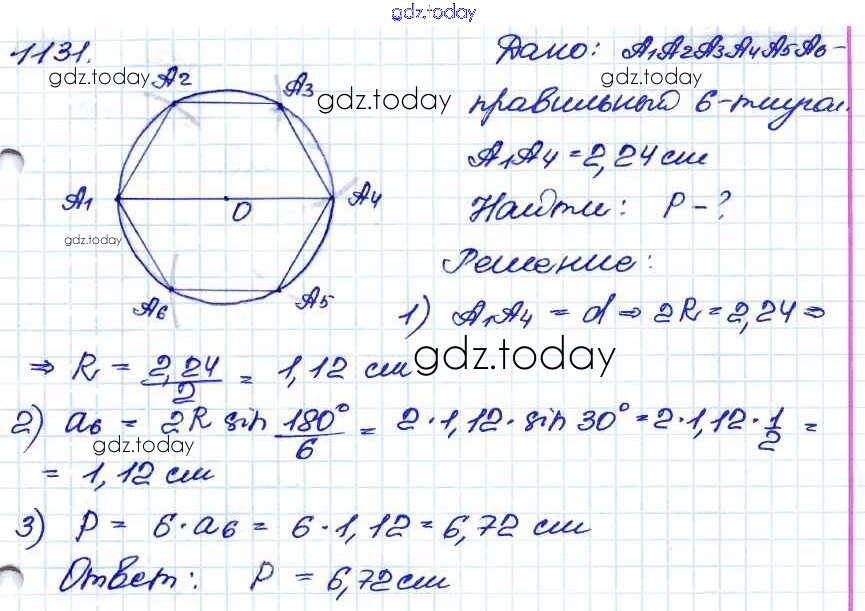 gdz.today
1131.
gdz.today
A2
A3
gdz.today
A1
O
A4
gdz.today
A6
A5
Дано: A1A2A3A4A5A6 -
gdz.today
правильный 6-тиугол.
A1A4 = 2,24 см
Найти: P - ?
Решение:
1) A1A4 = d ⇒ 2R = 2,24 ⇒
⇒ R = 2,24/2 = 1,12 см
gdz.today
2) a6 = 2R sin 180°/6 = 2·1,12·sin 30° = 2·1,12·1/2 =
gdz.today
= 1,12 см
3) P = 6·a6 = 6·1,12 = 6,72 см
Ответ: P = 6,72 см